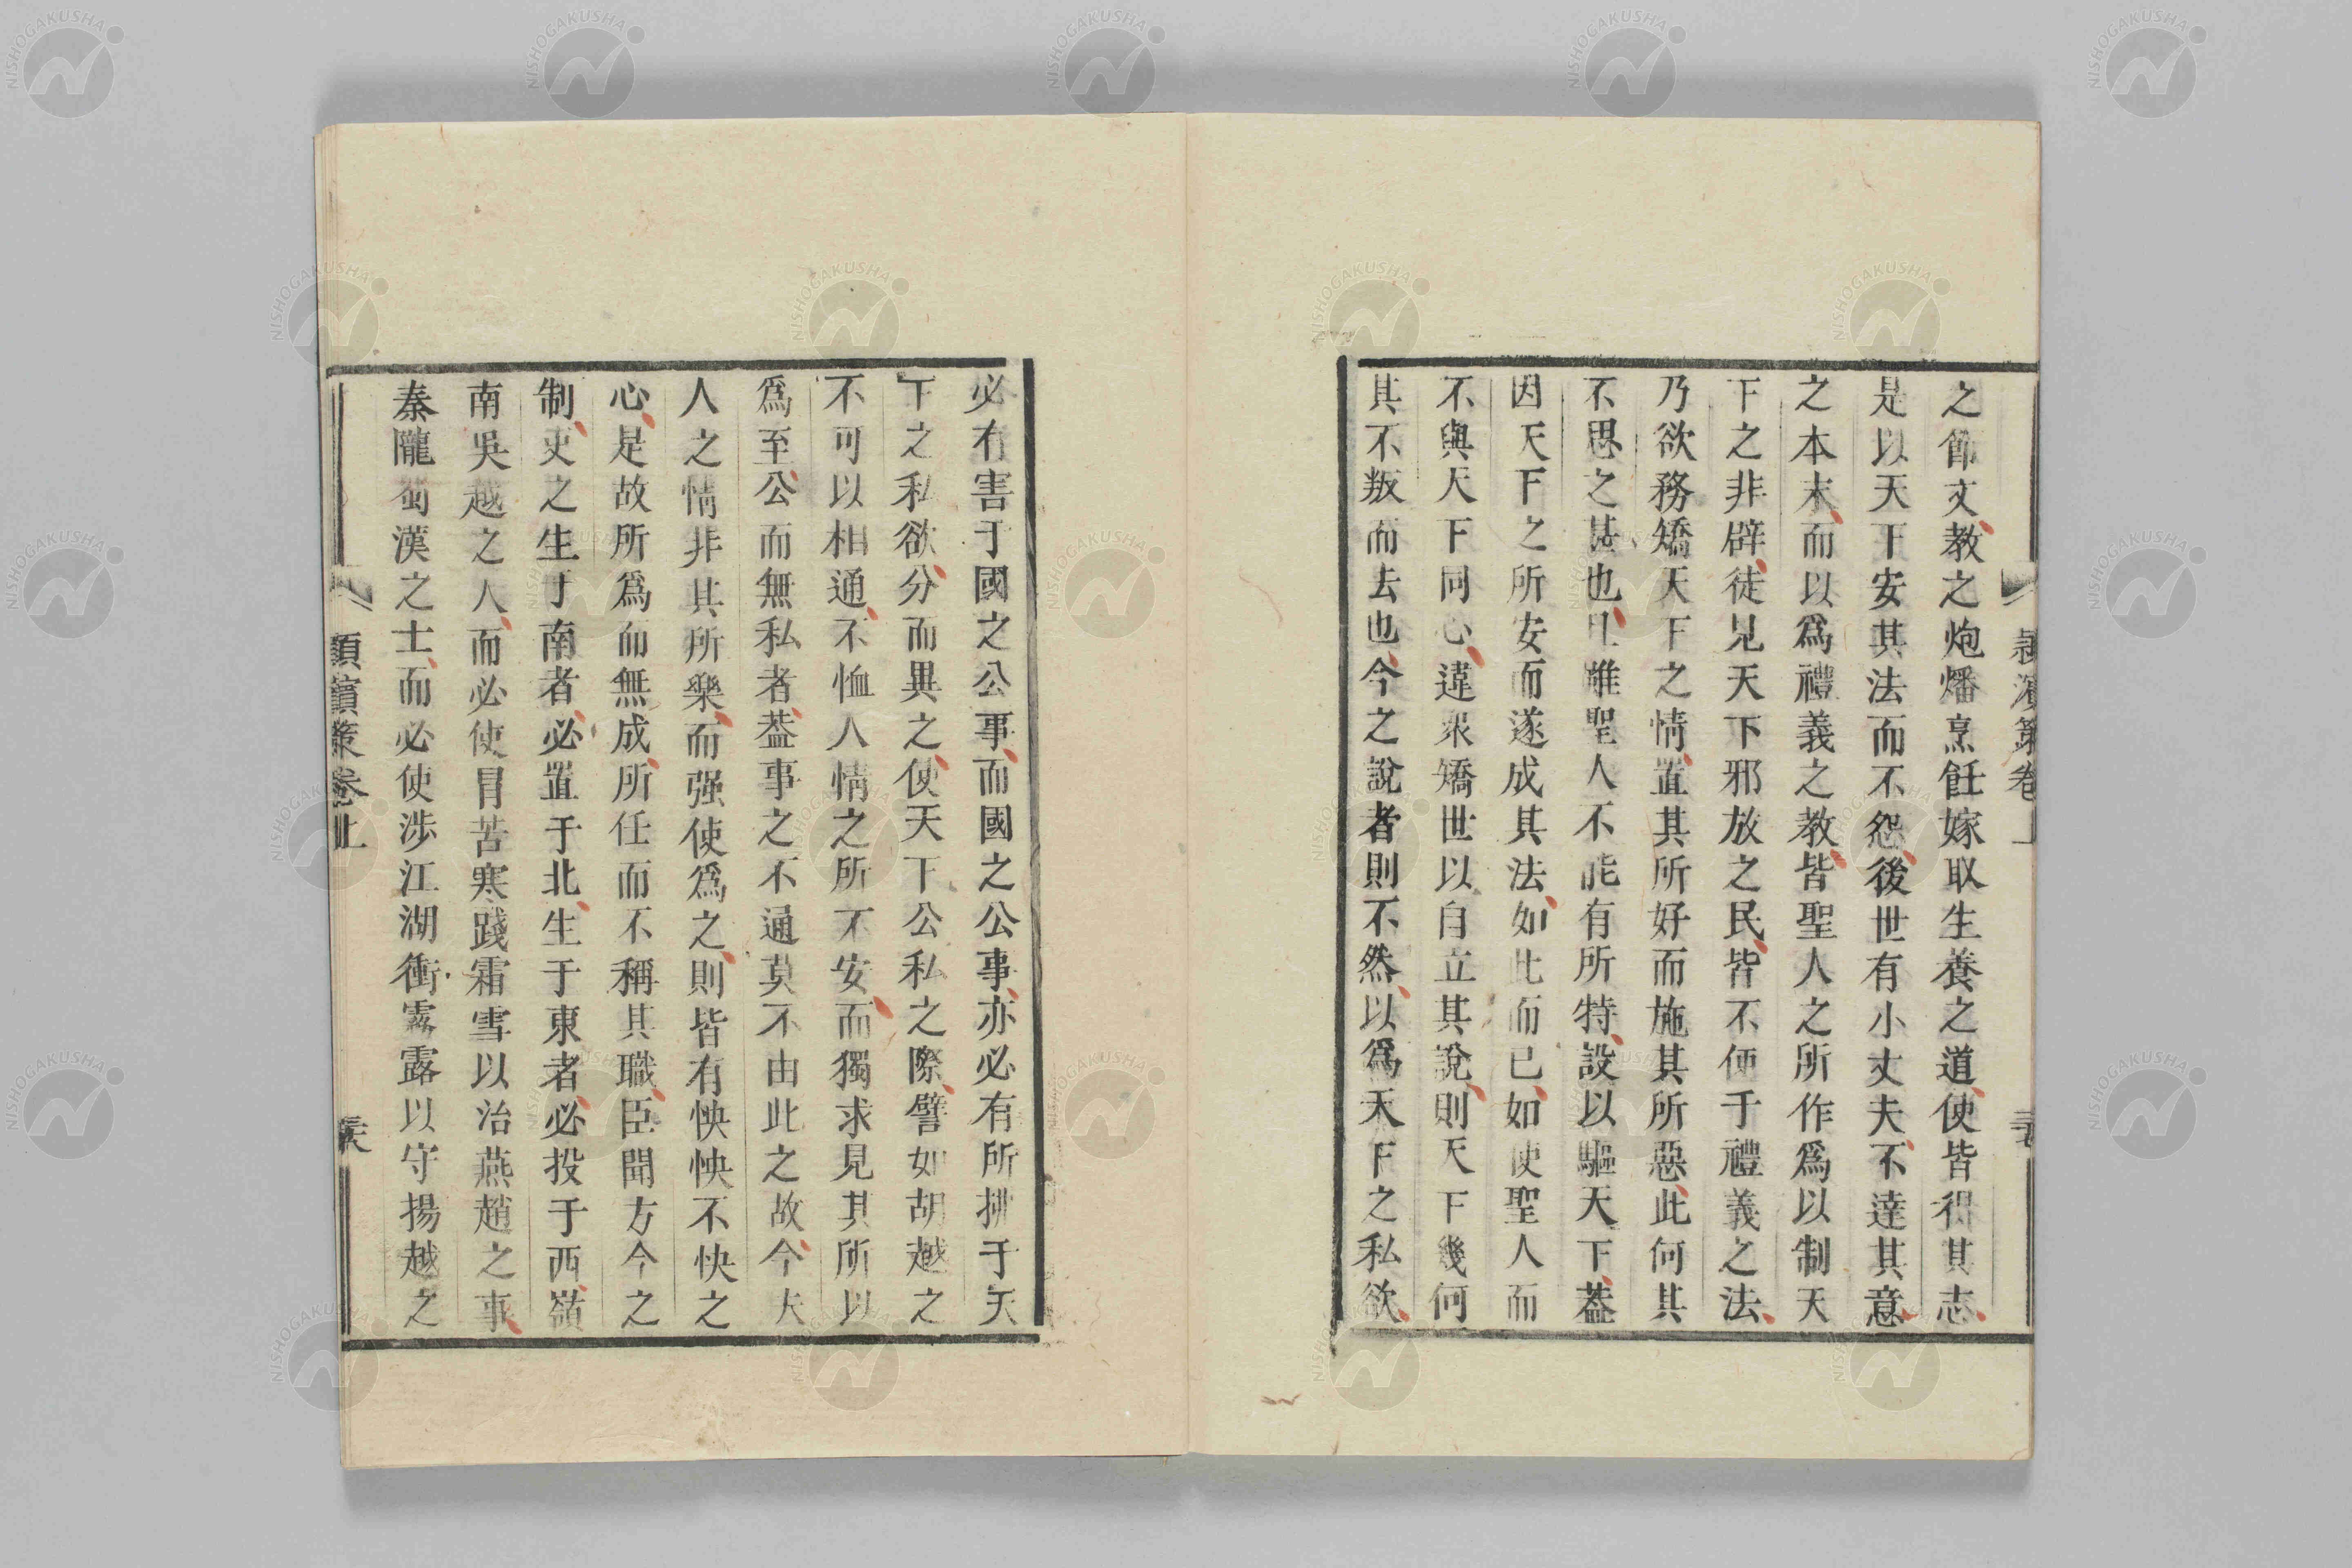 之節文教之炮燔烹飪嫁取生養之道使皆得其志
是以天下安其法而不怨後世有小丈夫不達其意
之本末而以爲禮義之教皆聖人之所作爲以制天
下之非辟徒見天下邪放之民皆不便于禮義之法
乃欲務矯天下之情置其所好而施其所惡此何其
不思之甚也且雖聖人不能有所特設以驅天下葢
因天下之所安而遂成其法如此而已如使聖人而
不與天下同心違衆矯世以自立其說則天下幾何
其不叛而去也今之說者則不然以爲天下之私欲
必有害于國之公事而國之公事亦必有所拂于天
下之私欲分而異之使天下公私之際譬如胡越之
不可以相通不恤人情之所不安而獨求見其所以
爲至公而無私者葢事之不通莫不由此之故今夫
人之情非其所樂而强使爲之則皆有怏怏不快之
心是故所爲而無成所任而不稱其職臣聞方今之
制吏之生于南者必置于北生于東者必投于西嶺
南吳越之人而必使冒苦寒踐霜雪以治燕趙之事
秦隴蜀漢之士而必使涉江湖衝霧露以守揚越之
頴濵策卷上